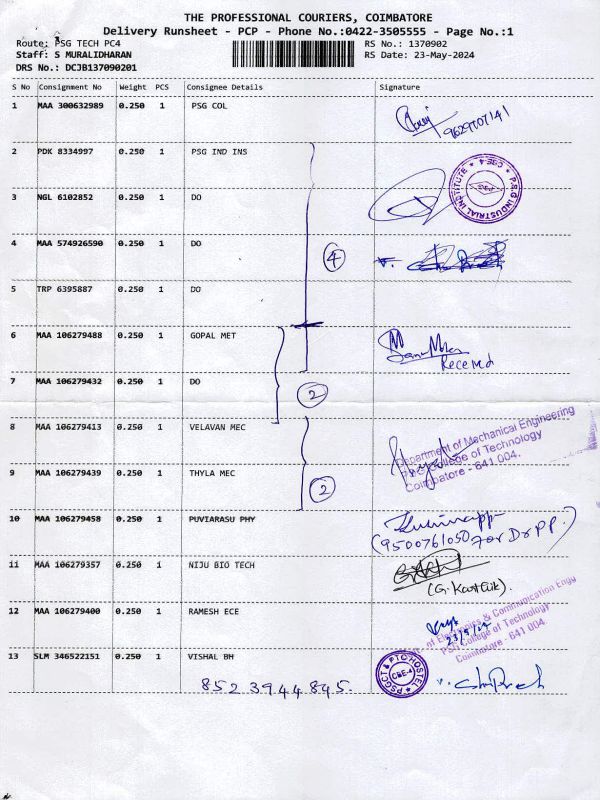 THE PROFESSIONAL COURIERS, COIMBATORE
Delivery Runsheet - PCP - Phone No.:0422-3505555 - Page No.:1
Route: PSG TECH PC4 RS No.: 1370902
Staff: S MURALIDHARAN RS Date: 23-May-2024
DRS No.: DCJB137090201
S No Consignment No Weight PCS Consignee Details Signature
1 MAA 300632989 0.250 1 PSG COL
2 PDK 8334997 0.250 1 PSG IND INS
P.S.G INDUSTRIAL INSTITUTE CBE-4
3 NGL 6102852 0.250 1 DO
4 MAA 574926590 0.250 1 DO
4
5 TRP 6395887 0.250 1 DO
6 MAA 106279488 0.250 1 GOPAL MET
Received
7 MAA 106279432 0.250 1 DO
2
8 MAA 106279413 0.250 1 VELAVAN MEC
Department of Mechanical Engineering
PSG College of Technology
Coimbatore - 641 004.
9 MAA 106279439 0.250 1 THYLA MEC
2
10 MAA 106279458 0.250 1 PUVIARASU PHY
(9500761050 For Dr PP.)
11 MAA 106279357 0.250 1 NIJU BIO TECH
(G. Karthik).
12 MAA 106279400 0.250 1 RAMESH ECE
of Electronics & Communication Engg
PSG College of Technology
Coimbatore - 641 004.
13 SLM 346522151 0.250 1 VISHAL BH
PSGCT & PTC HOSTEL CBE-4
852 3944 845.